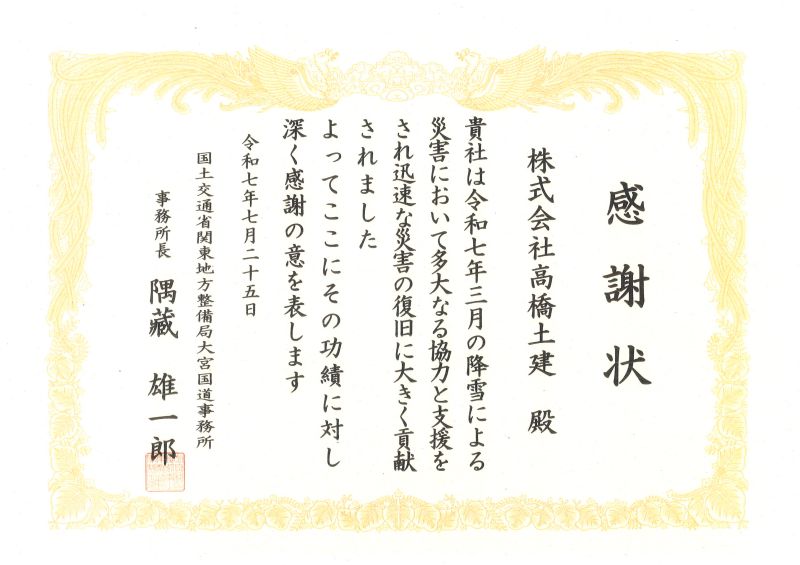 感謝状
株式会社高橋土建 殿
貴社は令和七年三月の降雪による
災害において多大なる協力と支援を
され迅速な災害の復旧に大きく貢献
されました
よってここにその功績に対し
深く感謝の意を表します
令和七年七月二十五日
国土交通省関東地方整備局大宮国道事務所
事務所長 隅蔵 雄一郎